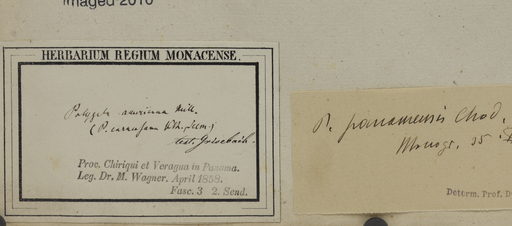 Imaged 2010
HERBARIUM REGIUM MONACENSE.
Polygala
(P.
test. Grisebach.
Prov. Chiriqui et Veragua in Panama.
Leg. Dr. M. Wagner. April 1858.
Fasc. 3 2. Send.
P. panamensis Chod.
Monogr. 25
Determ. Prof. D